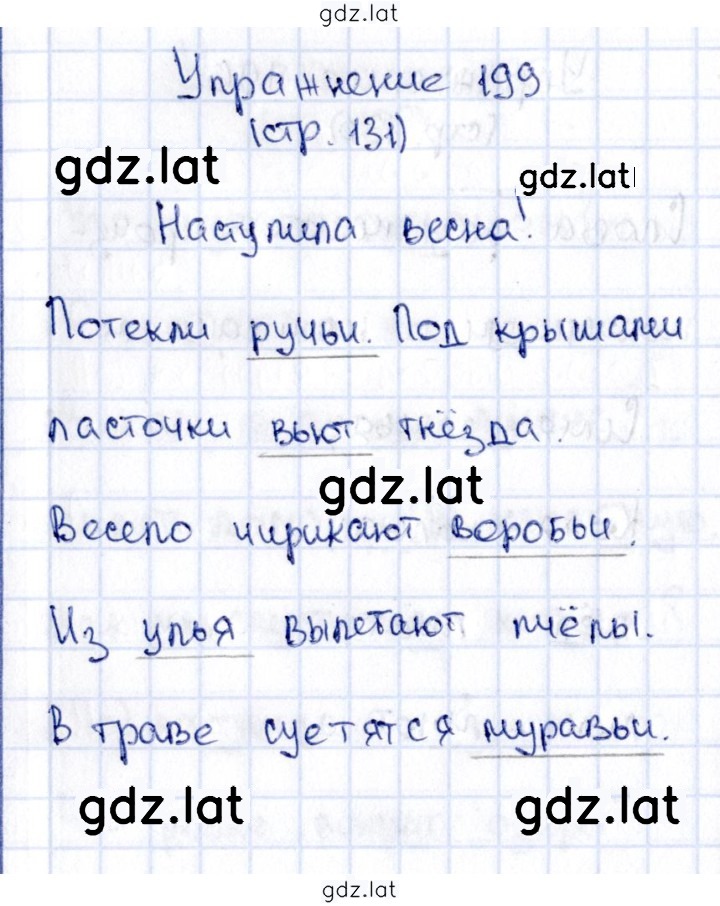 gdz.lat
Упражнение 199
(стр. 131)
gdz.lat
gdz.lat
Наступила весна!
Потекли ручьи. Под крышами
ласточки вьют гнёзда.
gdz.lat
Весело чирикают воробьи.
Из улья вылетают пчёлы.
В траве суетятся муравьи.
gdz.lat
gdz.lat
gdz.lat